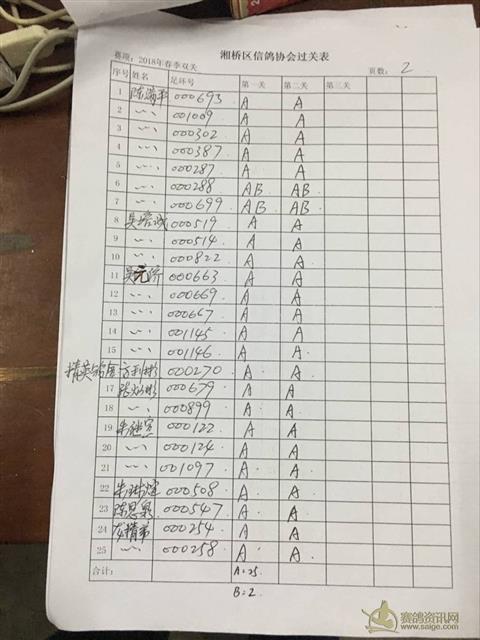 湘桥区信鸽协会过关表
赛项：2018年春季双关 页数：2
序号 姓名 足环号 第一关 第二关 第三关
1 陈满平 000693 A A
2 〃 001009 A A
3 〃 000302 A A
4 〃 000387 A A
5 〃 000287 A A
6 〃 000288 AB AB
7 〃 000699 AB AB
8 000519 A A
9 〃 000514 A A
10 〃 000822 A A
11 000663 A A
12 〃 000669 A A
13 〃 000667 A A
14 〃 001145 A A
15 〃 001146 A A
000270 A A
17 000679 A A
18 〃 000899 A A
19 000122 A A
20 〃 000124 A A
21 〃 001097 A A
22 000508 A A
23 陈思泉 000547 A A
24 000254 A A
25 〃 000258 A A
合计： A=25
B=2
赛鸽资讯网
www.saige.com